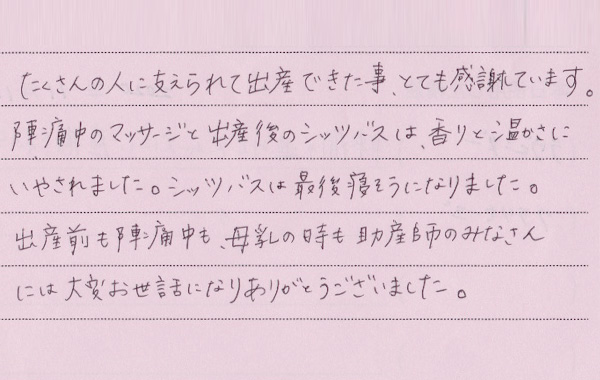 たくさんの人に支えられて出産できた事、とても感謝しています。
陣痛中のマッサージと出産後のシッツバスは、香りと温かさに
いやされました。シッツバスは最後寝そうになりました。
出産前も陣痛中も、母乳の時も助産師のみなさん
には大変お世話になりありがとうございました。